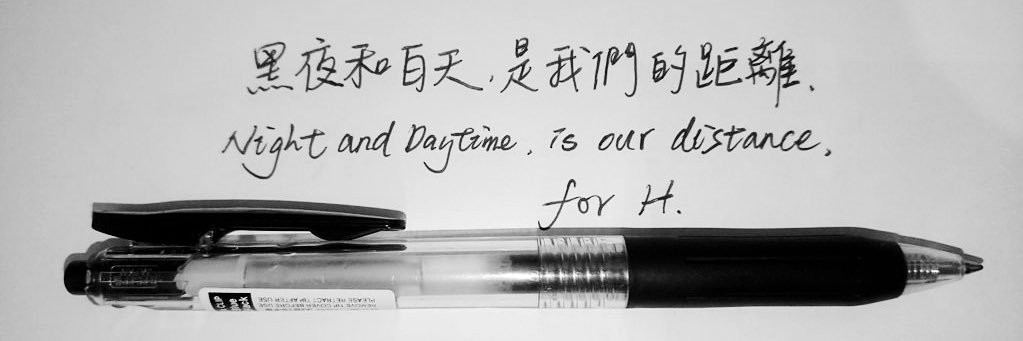 黑夜和白天,是我們的距離.
Night and Daytime, is our distance,
for H.
CLIP
PLEASE RETRACT TIP AFTER USE
REMOVE TIP COVER BEFORE USE